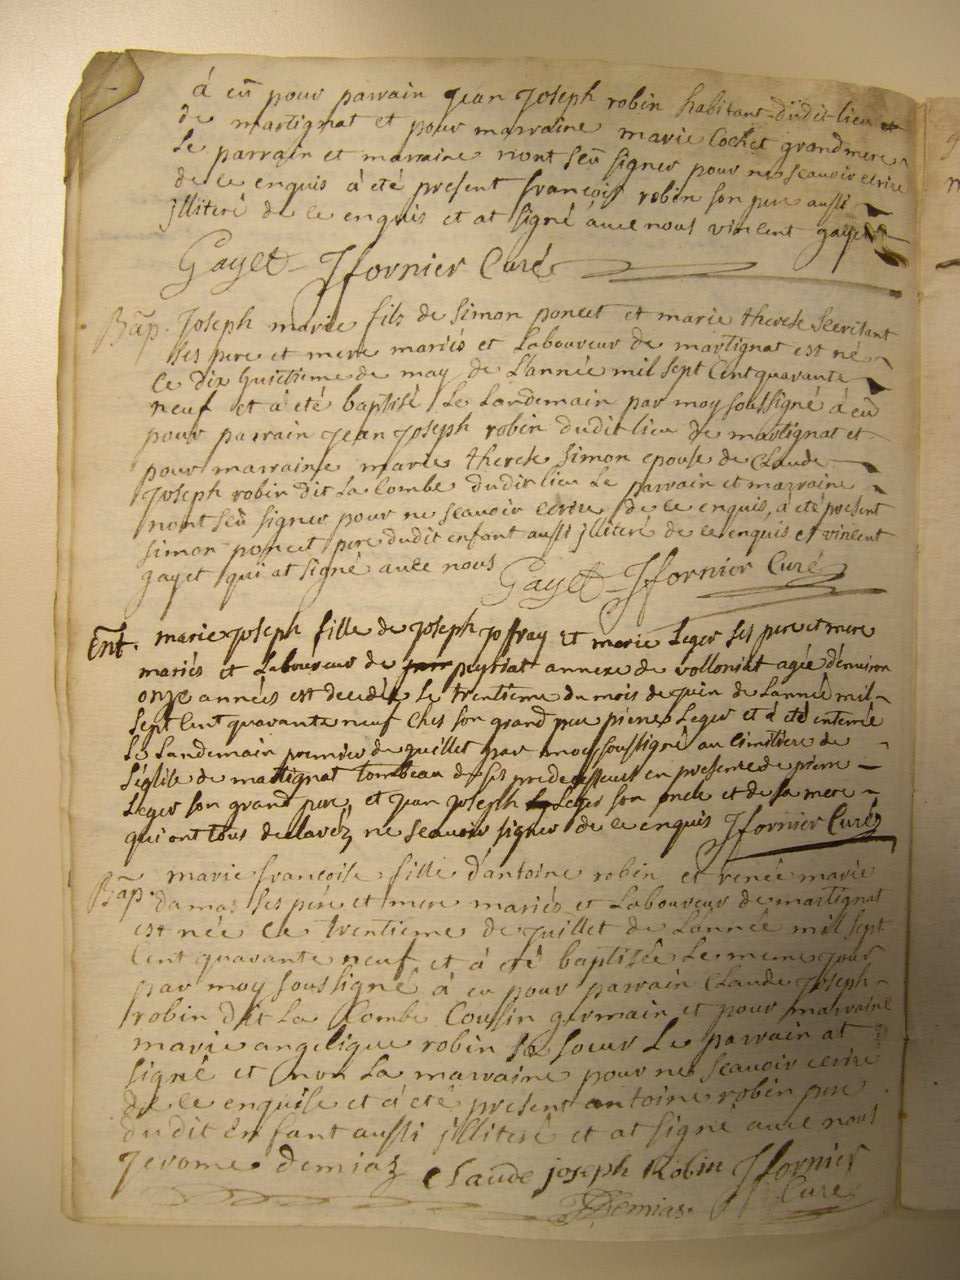 á eü pour parrain Jean Joseph robin habitant düdit lieu
de martignat et pour marraine marie Cochet grandmere
Le parrain et marraine nont seü signer pour ne sçeavoir ecrire
de ce enquis á été present françois robin son pere aussi
jlliteré de ce enquis et at signé avec nous vincent gayet
Gayet Jfornier Curé
Bap. Joseph marie fils de Simon poncet et marie therese
ses pere et mere mariés et Laboureur de martignat est né
Le dix huictieme de may de L'année mil sept Cent quarante
neuf et á été baptisé Le Landemain par moy soussigné á eü
pour parrain jean joseph robin dudit lieu de martignat et
pour marraine marie therese Simon epouse de Claude
Joseph robin dit La Combe dudit lieu Le parrain et marraine
nont seü signer pour ne sçeavoir ecrire de ce enquis, á été present
simon poncet pere dudit enfant aussi jlliteré de ce enquis et vincent
gayet quï at signé avec nous Gayet Jfornier Curé
Ent. marie joseph fille de joseph joffray et marie Leger ses pere et mere
mariés et Laboureur de peyriat annexe de volloniat agée d'environ
onze années est decidée Le trentieme du mois de juin de L'année mil
sept Cent quarante neuf ches son grand pere pierre Leger et á eté enterrée
Le Landemain premier de juillet par moy soussigné au Cimitiere de
L'église de martignat tombeau de ses predecesseurs en presence de pierre
Leger son grand pere, et jean joseph Leger son oncle et de sa mere
qui ont tous declaréz ne sceavoir signer de ce enquis Jfornier Curé
Bap. marie françoise fille d'antoine robin et renée marie
damas ses pére et mere mariés et Laboureur de martignat
est née Le trentieme de juillet de L'année mil sept
Cent quarante neuf et á été baptisée Le meme jour
par moy soussigné á eu pour parrain Claude Joseph
robin dit La Combe Cousin germain et pour marraine
marie angelique robin sa soeur Le parrain at
signé et non La marraine pour ne sceavoir ecrire
de ce enquise et á été present antoine robin pere
du dit enfant aussi jlliteré et at signé avec nous
Jerome demiaz Claude joseph Robin Jfornier
Demias. Curé